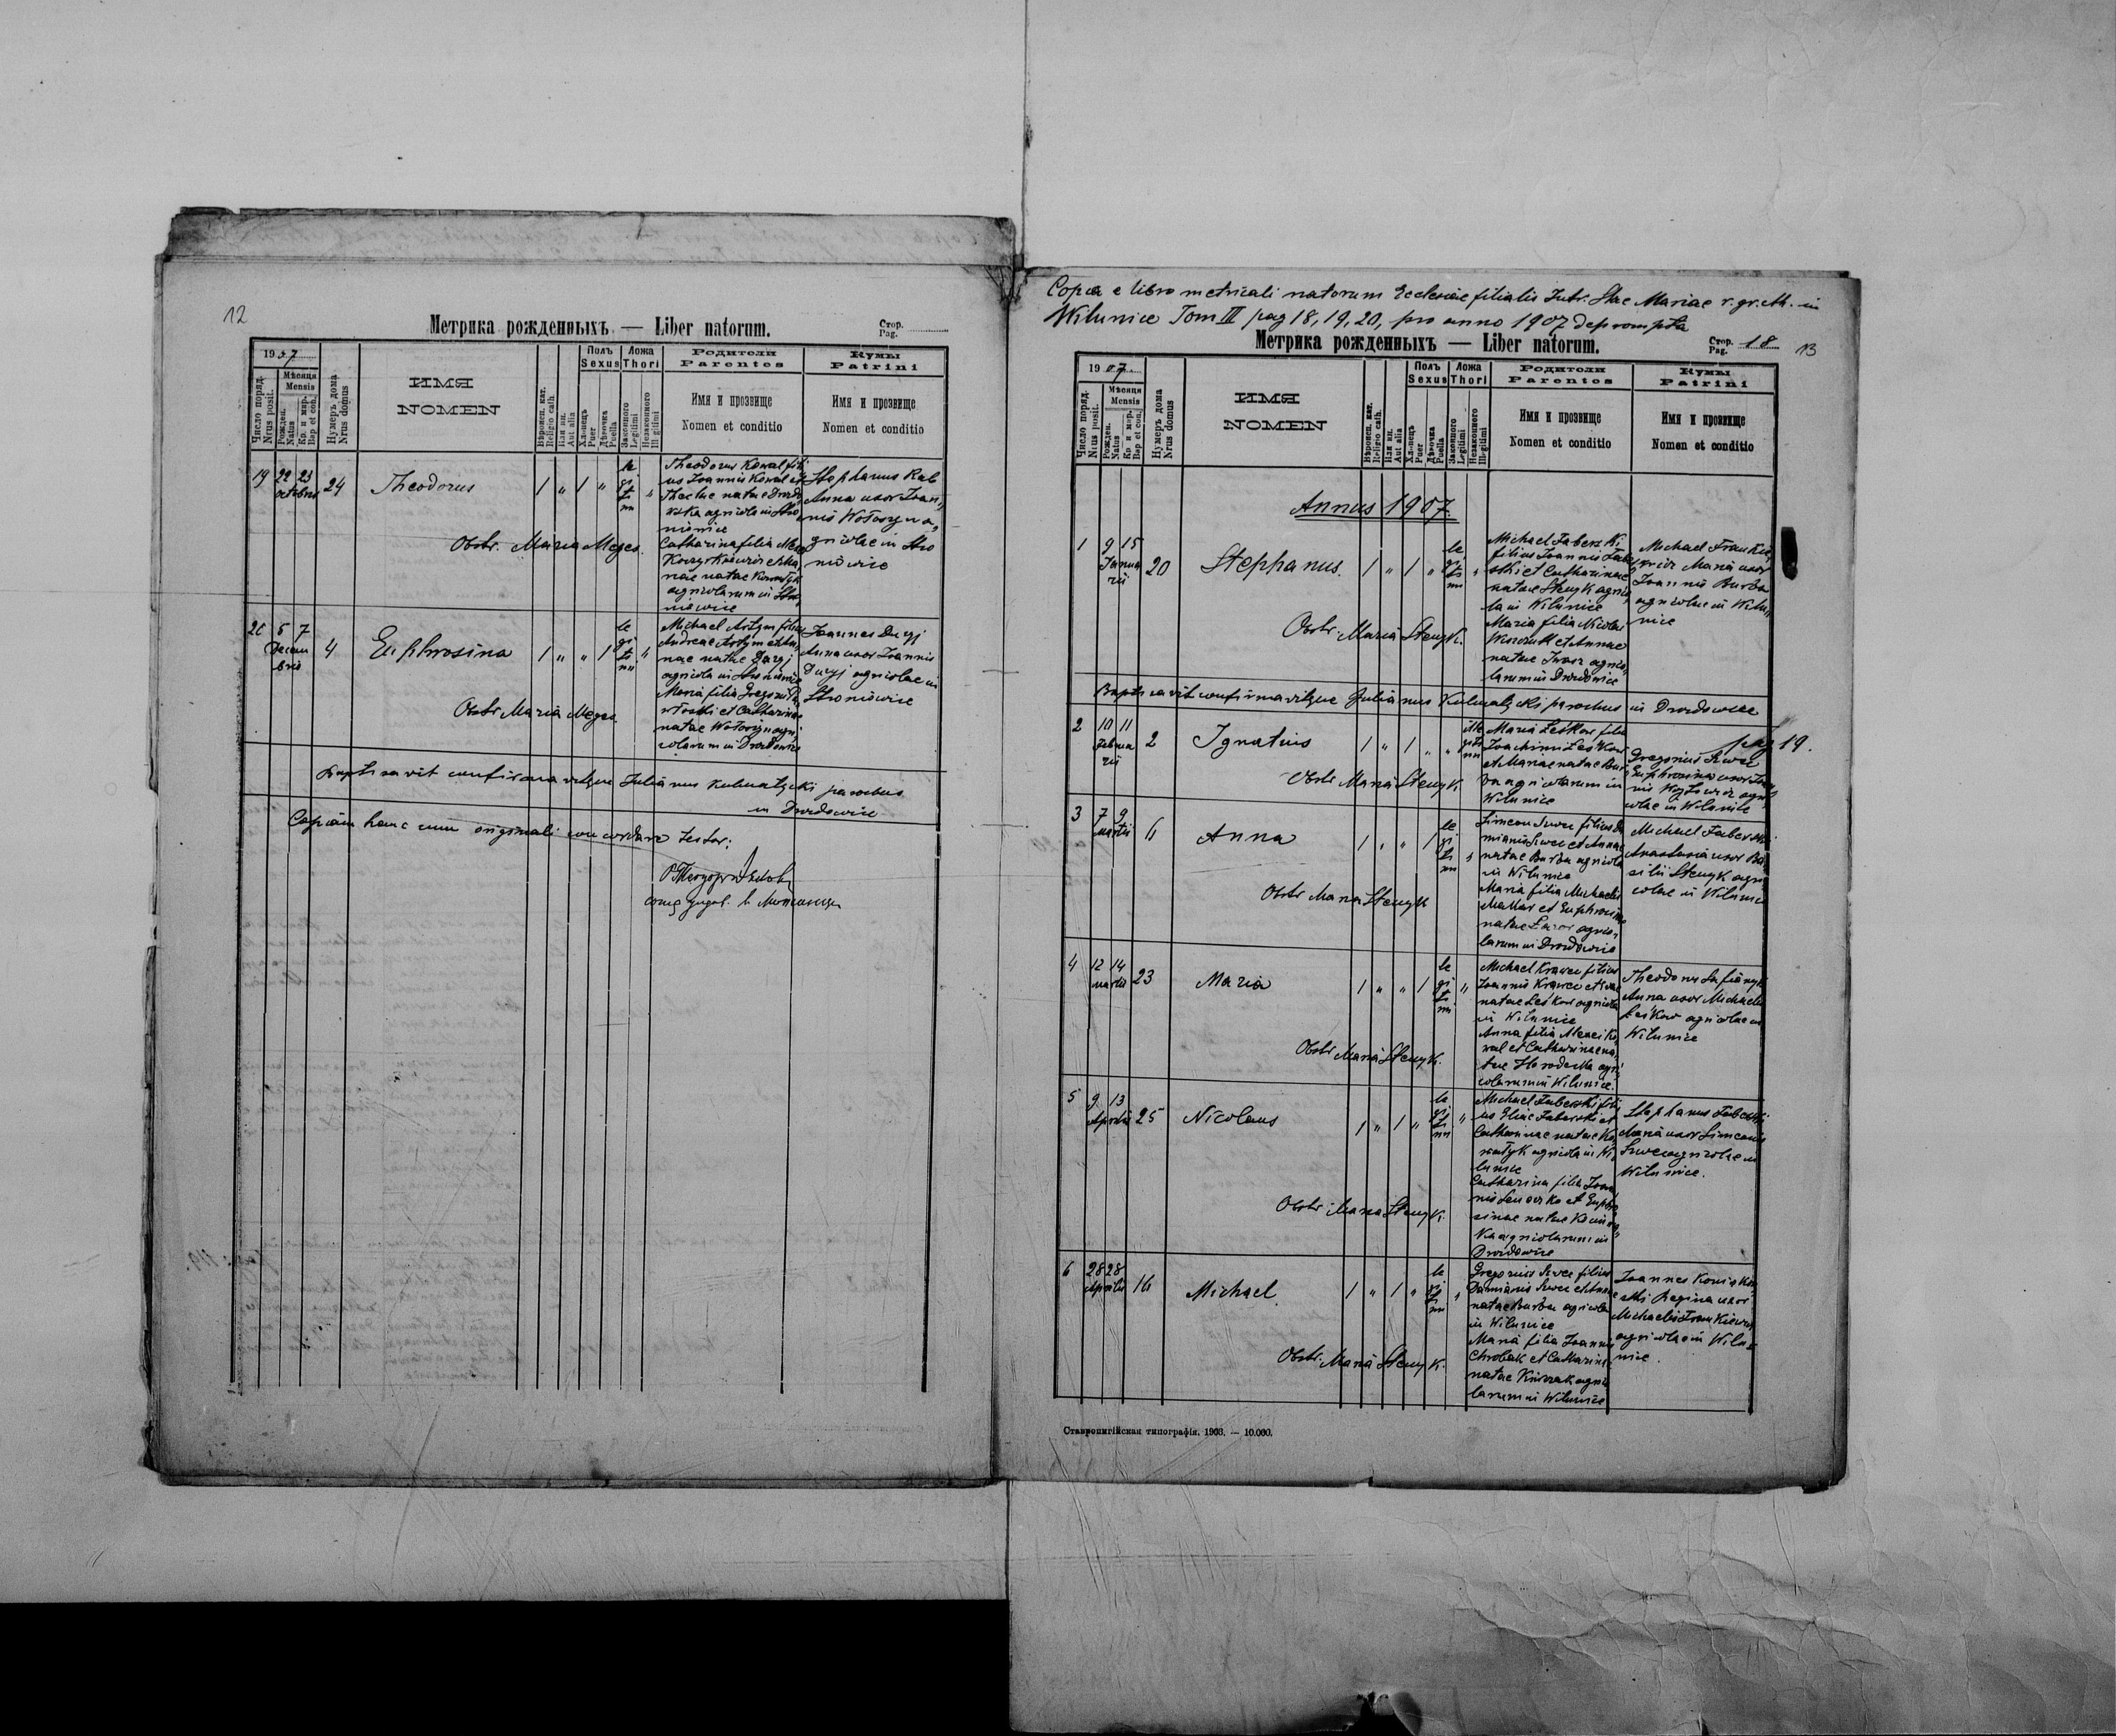 12
Метрика рожденныхъ. — Liber natorum.
Стор.
Pag.
1907
Число поряд.
Nrus posit.
Мѣсяця
Mensis
Рожден.
Natus
Кр. и мир.
Bap et con.
Нумеръ дома
Nrus domus
ИМЯ
NOMEN
Вѣроисп. кат.
Religio cath.
Или ин.
Aut alia
Полъ
Sexus
Хл-пецъ
Puer
Дѣвочка
Puella
Ложа
Thori
Законного
Legitimi
Незаконного
Illegitimi
Родители
Parentes
Имя и прозвище
Nomen et conditio
Кумы
Patrini
Имя и прозвище
Nomen et conditio
19 22 23 Octobris 24 Theodorus 1 " 1 " le gi ti mi "
Theodorus Kowal fili
us Joannis Kowal et
Theclae natae
agricola in
niowice
Catharina filia
nae natae
agricolarum in
niowice
Stephanus Rab
Anna uxor Joan
nis Wołoszyn a
gricolae in Stro
niowice
Obstr. Maria Meges.
20 5 7 Decem bris 4 Euphrosina 1 " " 1 le gi ti mi "
Michael Artym filius
Andreae Artym et An
nae natae Duzyj
agricola in Stroniowice
Maria filia Gregorii
et Catharinae
natae Wołoszyn agri
colarum in Drozdowice
Joannes Duzyj
Anna uxor Joannis
Duzyj agricolae in
Stroniowice
Obstr. Maria Meges
Baptisavit confirmavitque Julianus Kulmatycki parochus
in Drozdowice
Copiam hanc cum originali concordare testor:
Copia e libro metricali natorum Ecclesiae filialis Intr. Stae Mariae r. gr. cth. in
Wilunice Tom III pag 18, 19, 20, pro anno 1907 deprompta
Метрика рожденныхъ. — Liber natorum.
Стор.
Pag. 18
13
1907
Число поряд.
Nrus posit.
Мѣсяця
Mensis
Рожден.
Natus
Кр. и мир.
Bap et con.
Нумеръ дома
Nrus domus
ИМЯ
NOMEN
Вѣроисп. кат.
Religio cath.
Или ин.
Aut alia
Полъ
Sexus
Хл-пецъ
Puer
Дѣвочка
Puella
Ложа
Thori
Законного
Legitimi
Незаконного
Illegitimi
Родители
Parentes
Имя и прозвище
Nomen et conditio
Кумы
Patrini
Имя и прозвище
Nomen et conditio
Annus 1907.
1 9 15 Janua rii 20 Stephanus. 1 " 1 " le gi ti mi "
Michael Faberski
filius Joannis Faber
ski et Catharinae
natae Stenyk agrico
la in Wilunice
Maria filia Nicolai
et Annae
natae Iwasz agrico
larum in Drozdowice
Michael Frankie
wicz Maria uxor
Joannis Burba
agricolae in Wilu
nice
Obstr. Maria Stenyk.
Baptisavit confirmavitque Julianus Kulmatycki parochus in Drozdowice
pag 19.
2 10 11 Februa rii 2 Ignatius 1 " 1 " " ille giti mi
Maria Leśkow filia
Joachimi Leśkow
et Mariae natae Bur
ba agricolarum in
Wilunice
Gregorius Szwec
Euphrosina uxor Joan
nis Wojtowicz agri
colae in Wilunice
Obstr. Maria Stenyk.
3 7 9 Martii 11 Anna 1 " " 1 le gi ti mi "
Simeon Szwec filius Da
miani Szwec et Annae
natae Burba agricola
in Wilunice
Maria filia Michaelis
Makar et Euphrosinae
natae Łazor agrico
larum in Drozdowice
Michael Faberski
Anastasia uxor Ba
silii Stenyk agri
colae in Wilunice
Obstr. Maria Stenyk
4 12 14 Martii 23 Maria 1 " " 1 le gi ti mi "
Michael Krawec filius
Joannis Krawec et
natae Leśkow agricola
in Wilunice
Anna filia Alexii Ko
wal et Catharinae na
tae Horodecka agri
colarum in Wilunice.
Theodorus
Anna uxor Michaelis
Leśkow agricolae in
Wilunice
Obstr. Maria Stenyk.
5 9 13 Aprilis 25 Nicolaus 1 " 1 " le gi ti mi "
Michael Faberski fili
us Eliae Faberski et
Catharinae natae Ko
watyk agricola in Wi
lunice
Catharina filia Joan
nis et Euphro
sinae natae
agricolarum in
Drozdowice
Stephanus Faberski
Maria uxor Simeonis
Szwec agricolae in
Wilunice.
Obstr. Maria Stenyk.
6 28 28 Aprilis 16 Michael 1 " 1 " le gi ti mi "
Gregorius Szwec filius
Damiani Szwec et Annae
natae Burba agricola
in Wilunice
Maria filia Joannis
Chrobak et Catharinae
natae agrico
larum in Wilunice
Joannes
Regina uxor
Michaelis Frankiewicz
agricolae in Wilu
nice.
Obstr. Maria Stenyk.
Ставропигійская типографія. 1903. — 10.000.